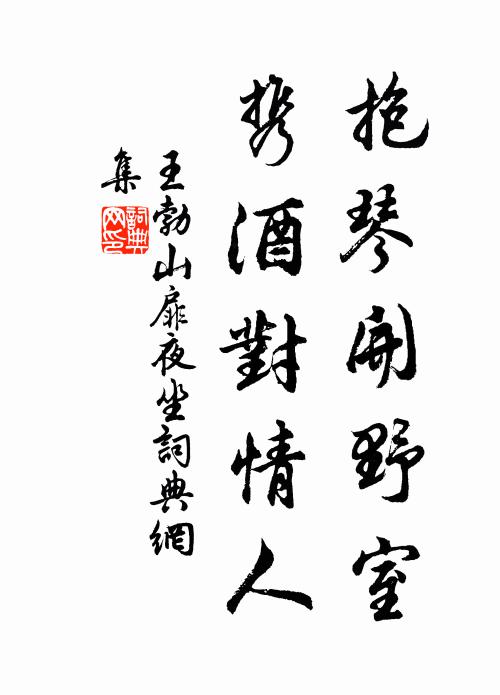 抱琴開野室
携酒對情人
王勃山扉夜坐詞典網
集
詞典网印